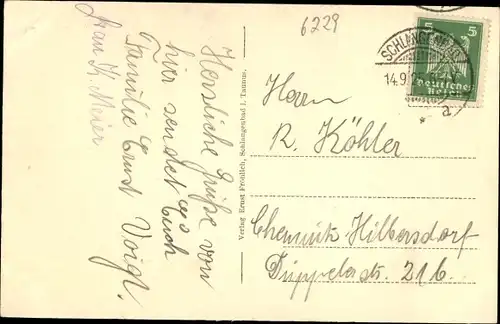 6229
Frau K. Meier
Herzliche Grüße von
hier sendet Euch
Familie Ernst Voigt.
Verlag Ernst Fröhlich, Schlangenbad i. Taunus.
SCHLANGENBAD
14.9.25
a
5 5
Deutsches
Reich
Herrn
R. Köhler
Chemnitz Hilbersdorf
Düppelstr. 21 b.